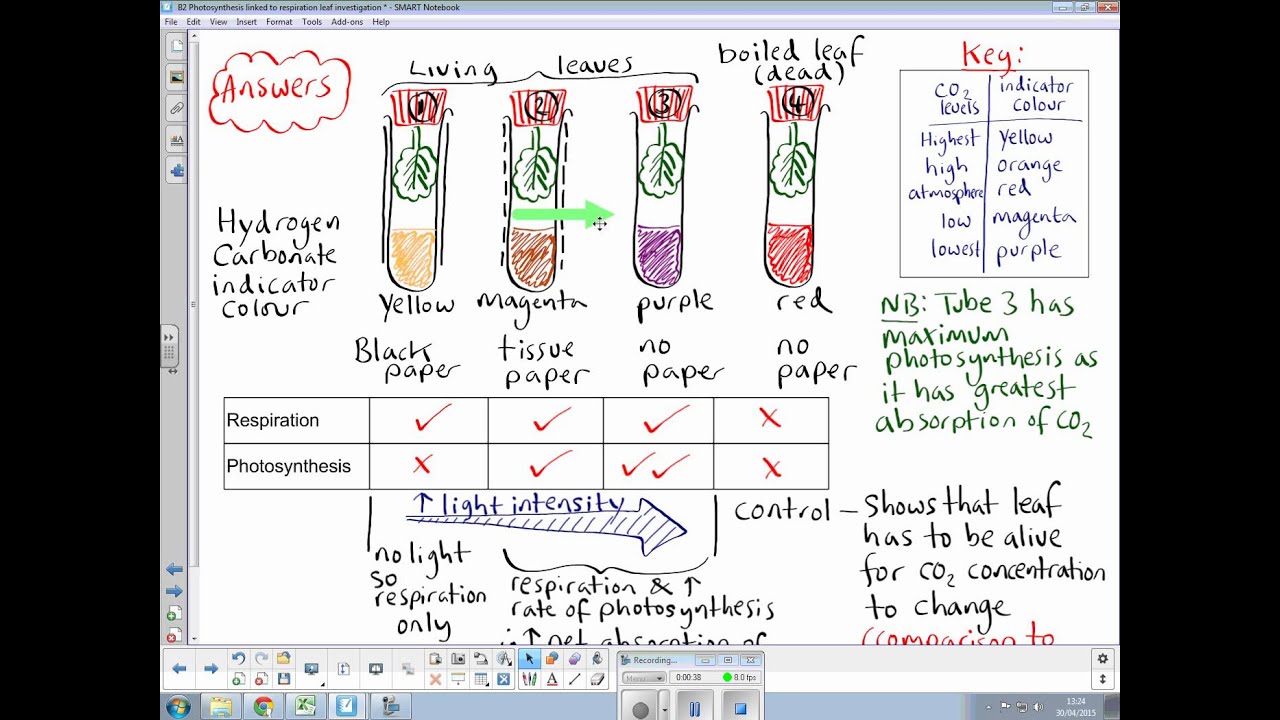 B2 Photosynthesis linked to respiration leaf investigation * - SMART Notebook
File Edit View Insert Format Tools Add-ons Help
Answers
Living leaves
boiled leaf
(dead)
1 2 3 4
Hydrogen
Carbonate
indicator
colour
yellow magenta purple red
Black paper
tissue paper
no paper
no paper
Key:
CO2 levels indicator colour
Highest yellow
high orange
atmosphere red
low magenta
lowest purple
NB: Tube 3 has
maximum
photosynthesis as
it has greatest
absorption of CO2
Respiration ✓ ✓ ✓ X
Photosynthesis X ✓ ✓✓ X
↑ light intensity
no light
so
respiration
only
respiration & ↑
rate of photosynthesis
∴ ↑ net absorption of
control – shows that leaf
has to be alive
for CO2 concentration
to change
(comparison to
Recording...
Menu
0:00:38
8.0 fps
13:24
30/04/2015